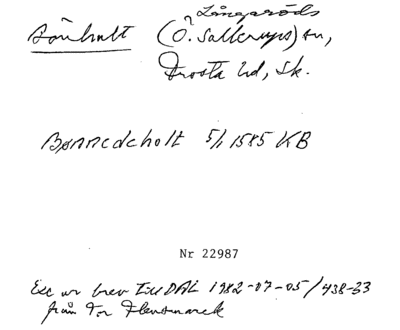 Långaröds
Bönhult (Ö. Sallerups) sn,
Frosta hd, Sk.
Bønnedeholt 5/1 1585 KB
Nr 22987
Exc ur brev till DAL 1982-07-05/438-33
från Tor Flensmarck